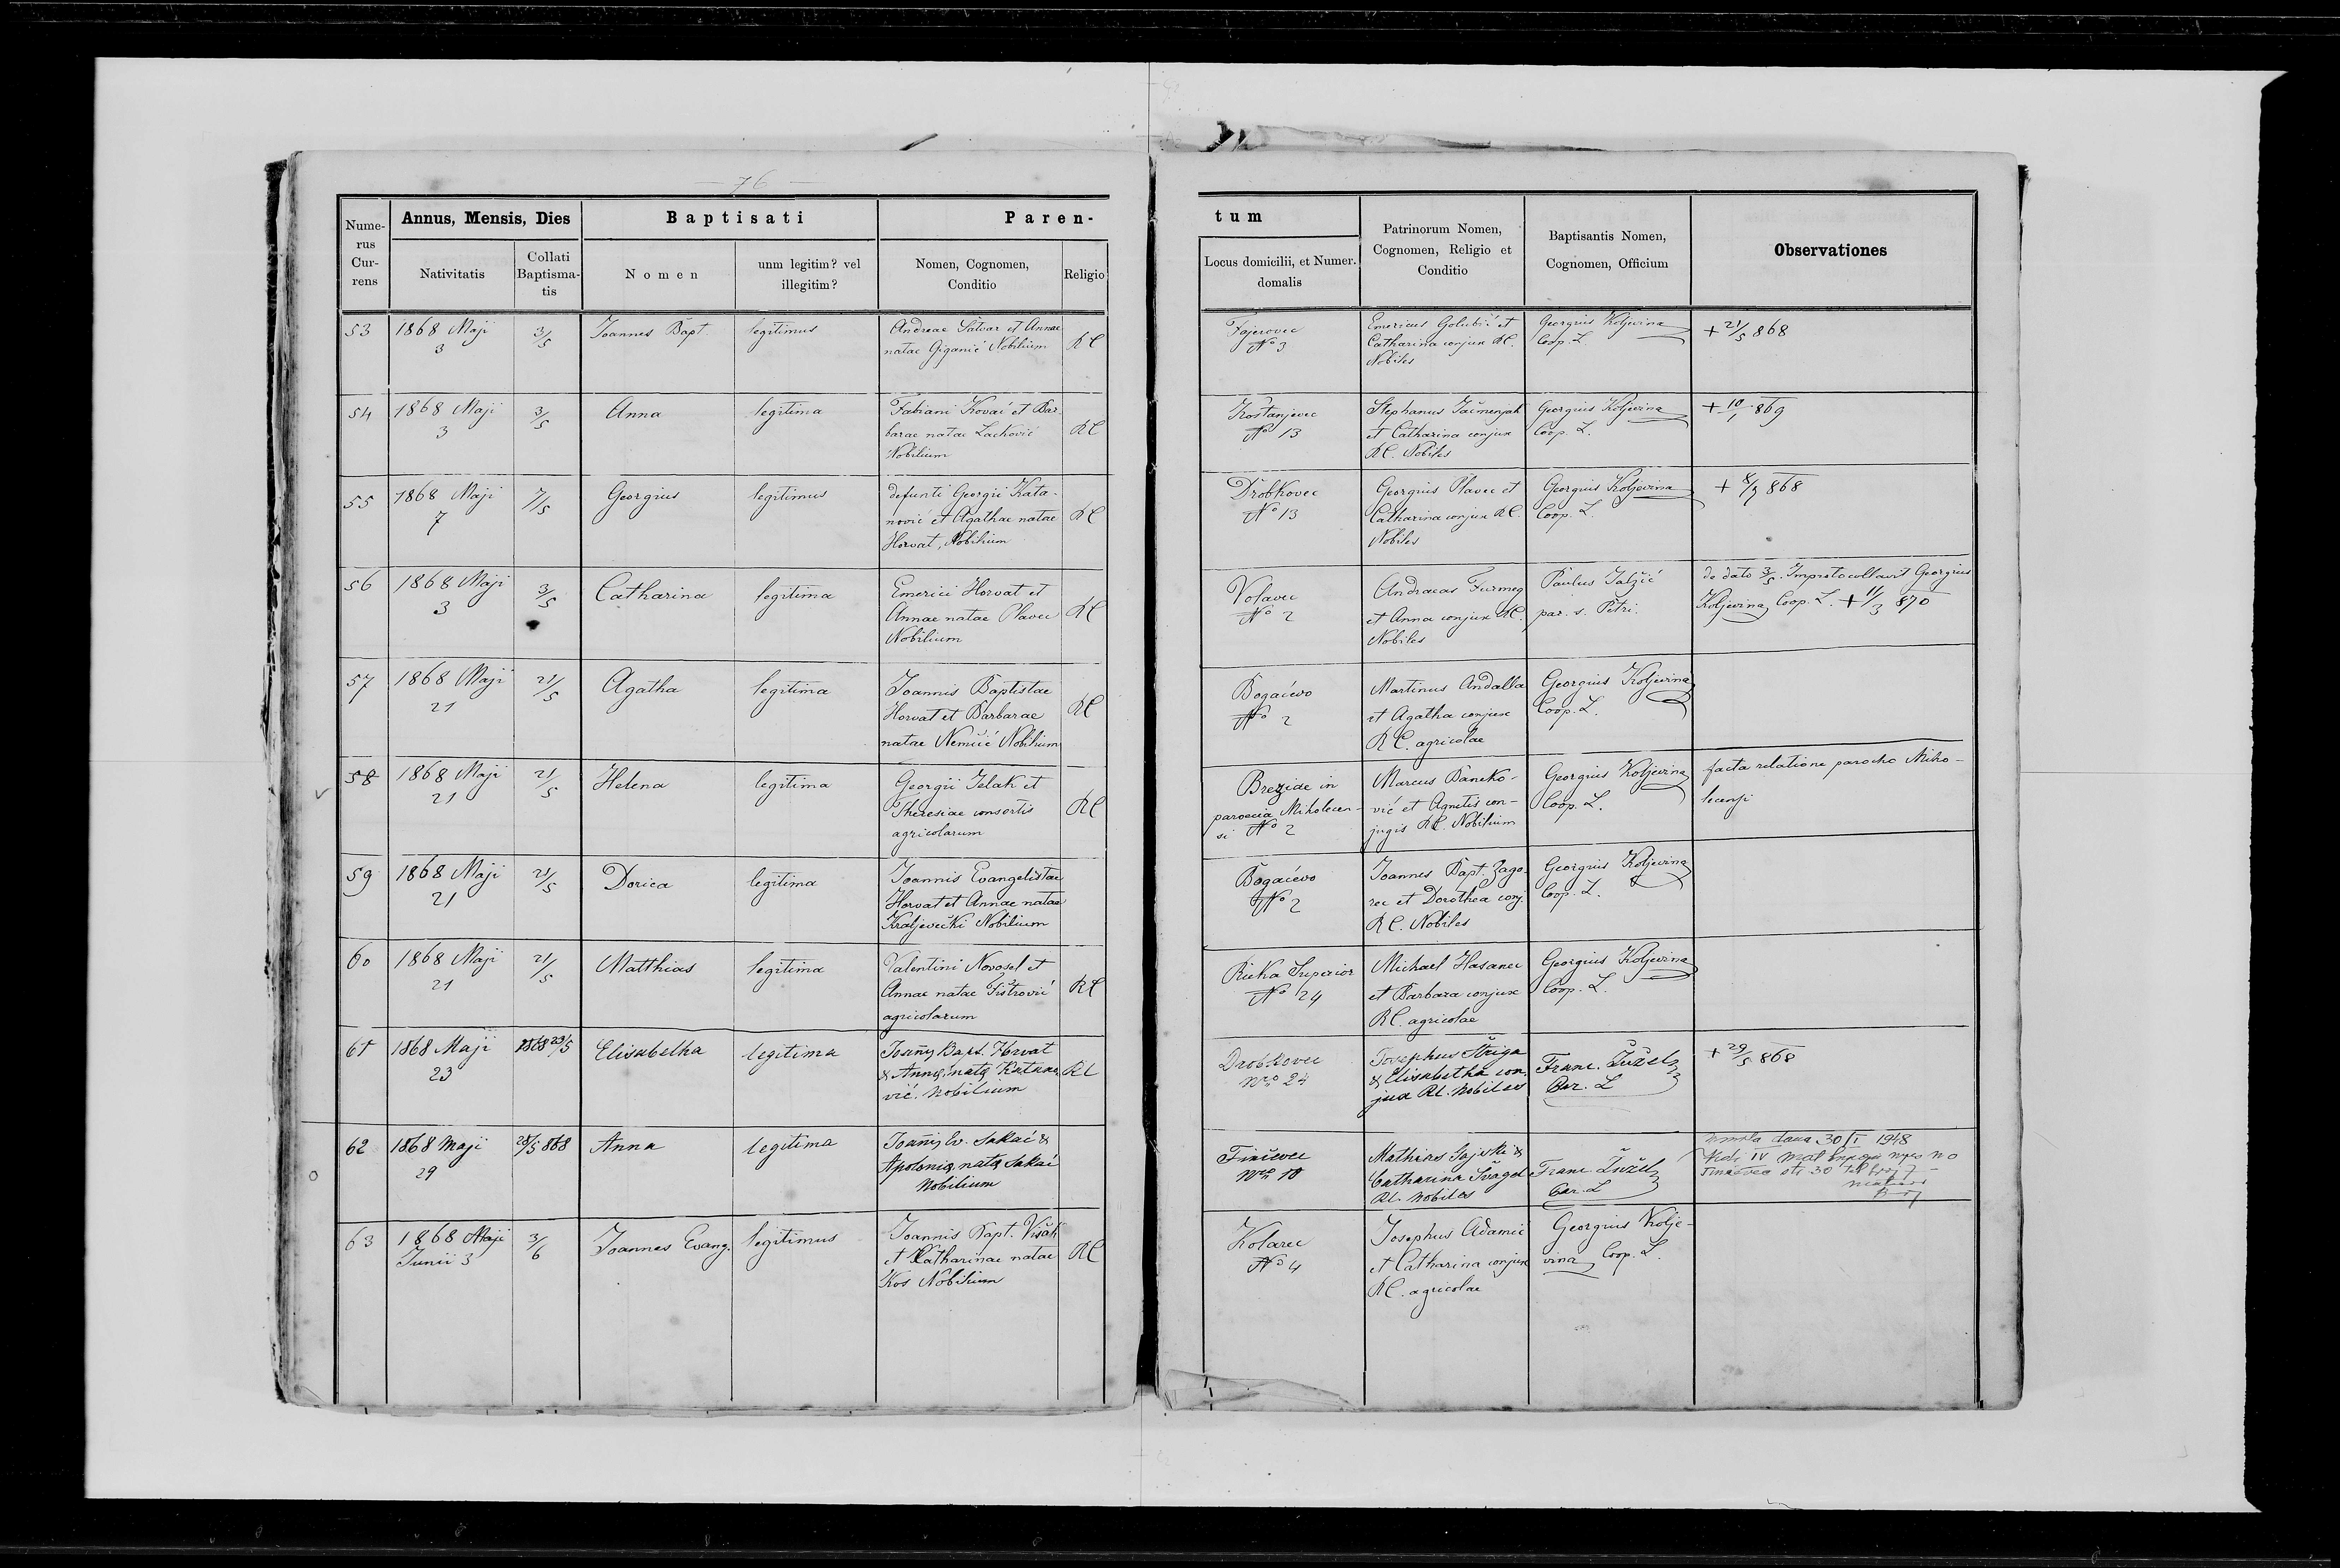 — 76 —
Nume-
rus
Cur-
rens
Annus, Mensis, Dies
Nativitatis
Collati
Baptisma-
tis
Baptisati
Nomen
unm legitim? vel
illegitim?
Paren-
Nomen, Cognomen,
Conditio
Religio
tum
Locus domicilii, et Numer.
domalis
Patrinorum Nomen,
Cognomen, Religio et
Conditio
Baptisantis Nomen,
Cognomen, Officium
Observationes
53
1868 Maji
3
3/5
Joannes Bapt
legitimus
Andreae Satvar et Annae
natae Giganić Nobilium
RC
Fajerovec
No 3
Emericus Golubić et
Catharina conjux RC.
Nobiles
Georgius Koljevina
Coop. L.
+ 21/5 868
54
1868 Maji
3
3/5
Anna
legitima
Fabiani Kovač et Bar-
barae natae Lacković
Nobilium
RC
Kostanjevec
No 13
Stephanus Ječmenjak
et Catharina conjux
RC. Nobiles
Georgius Koljevina
Coop. L.
+ 10/1 869
55
1868 Maji
7
7/5
Georgius
legitimus
defuncti Georgii Kata-
nović et Agathae natae
Horvat, Nobilium
RC
Drobkovec
No 13
Georgius Plavec et
Catharina conjux RC.
Nobiles
Georgius Koljevina
Coop. L.
868
56
1868 Maji
3
3/5
Catharina
legitima
Emerici Horvat et
Annae natae Plavec
Nobilium
RC
Volavec
No 2
Andraeas Furmeg
et Anna conjux RC.
Nobiles
Paulus Jalžić
par. s. Petri
de dato 3/5. Improtocollavit Georgius
Koljevina, Coop. L. + 11/3 870
57
1868 Maji
21
21/5
Agatha
legitima
Joannis Baptistae
Horvat et Barbarae
natae Nemčić Nobilium
RC
Bogačevo
No 2
Martinus Andalla
et Agatha conjux
RC. agricolae
Georgius Koljevina
Coop. L.
58
1868 Maji
21
21/5
Helena
legitima
Georgii Jelak et
Theresiae consortis
agricolarum
RC
Brezide in
paroecia Miholecen-
si No 2
Marcus Baneko-
vić et Agnetis con-
jugis RC. Nobilium
Georgius Koljevina
Coop. L.
facta relatione parocho Miho-
lecensi
59
1868 Maji
21
21/5
Dorica
legitima
Joannis Evangelistae
Horvat et Annae natae
Kraljevečki Nobilium
Bogačevo
No 2
Joannes Bapt. Zago-
rec et Dorothea conj.
RC. Nobiles
Georgius Koljevina
Coop. L.
60
1868 Maji
21
21/5
Matthias
legitima
Valentini Novosel et
Annae natae Fištrović
agricolarum
RC
Rieka Superior
No 24
Michael Hasanec
et Barbara conjux
RC. agricolae
Georgius Koljevina
Coop. L.
61
1868 Maji
23
1868 23/5
Elisabetha
legitima
Joañis Bapt. Horvat
& Annae, natae Katano-
vić. Nobilium
RC
Drobkovec
Nro 24
Josephus Štriga
& Elisabetha con-
jux RC. Nobiles
Franc. Žužel
Par. L
+ 29/5 868
62
1868 Maji
29
28/5 868
Anna
legitima
Joañis Ev. Sakač &
Apoloniae, natae Sakač
Nobilium
Finčevec
Nro 10
Mathias Gajski &
Catharina Švagel
RC. Nobiles
Franc. Žužel
Par. L
Umrla dana 30/I 1948
63
1868 Maji
Junii 3
3/6
Joannes Evang.
legitimus
Joannis Bapt. Višak
et Catharinae natae
Kos Nobilium
RC
Kolarec
No 4
Josephus Adamić
et Catharina conjux
RC. agricolae
Georgius Kolje-
vina, Coop. L.